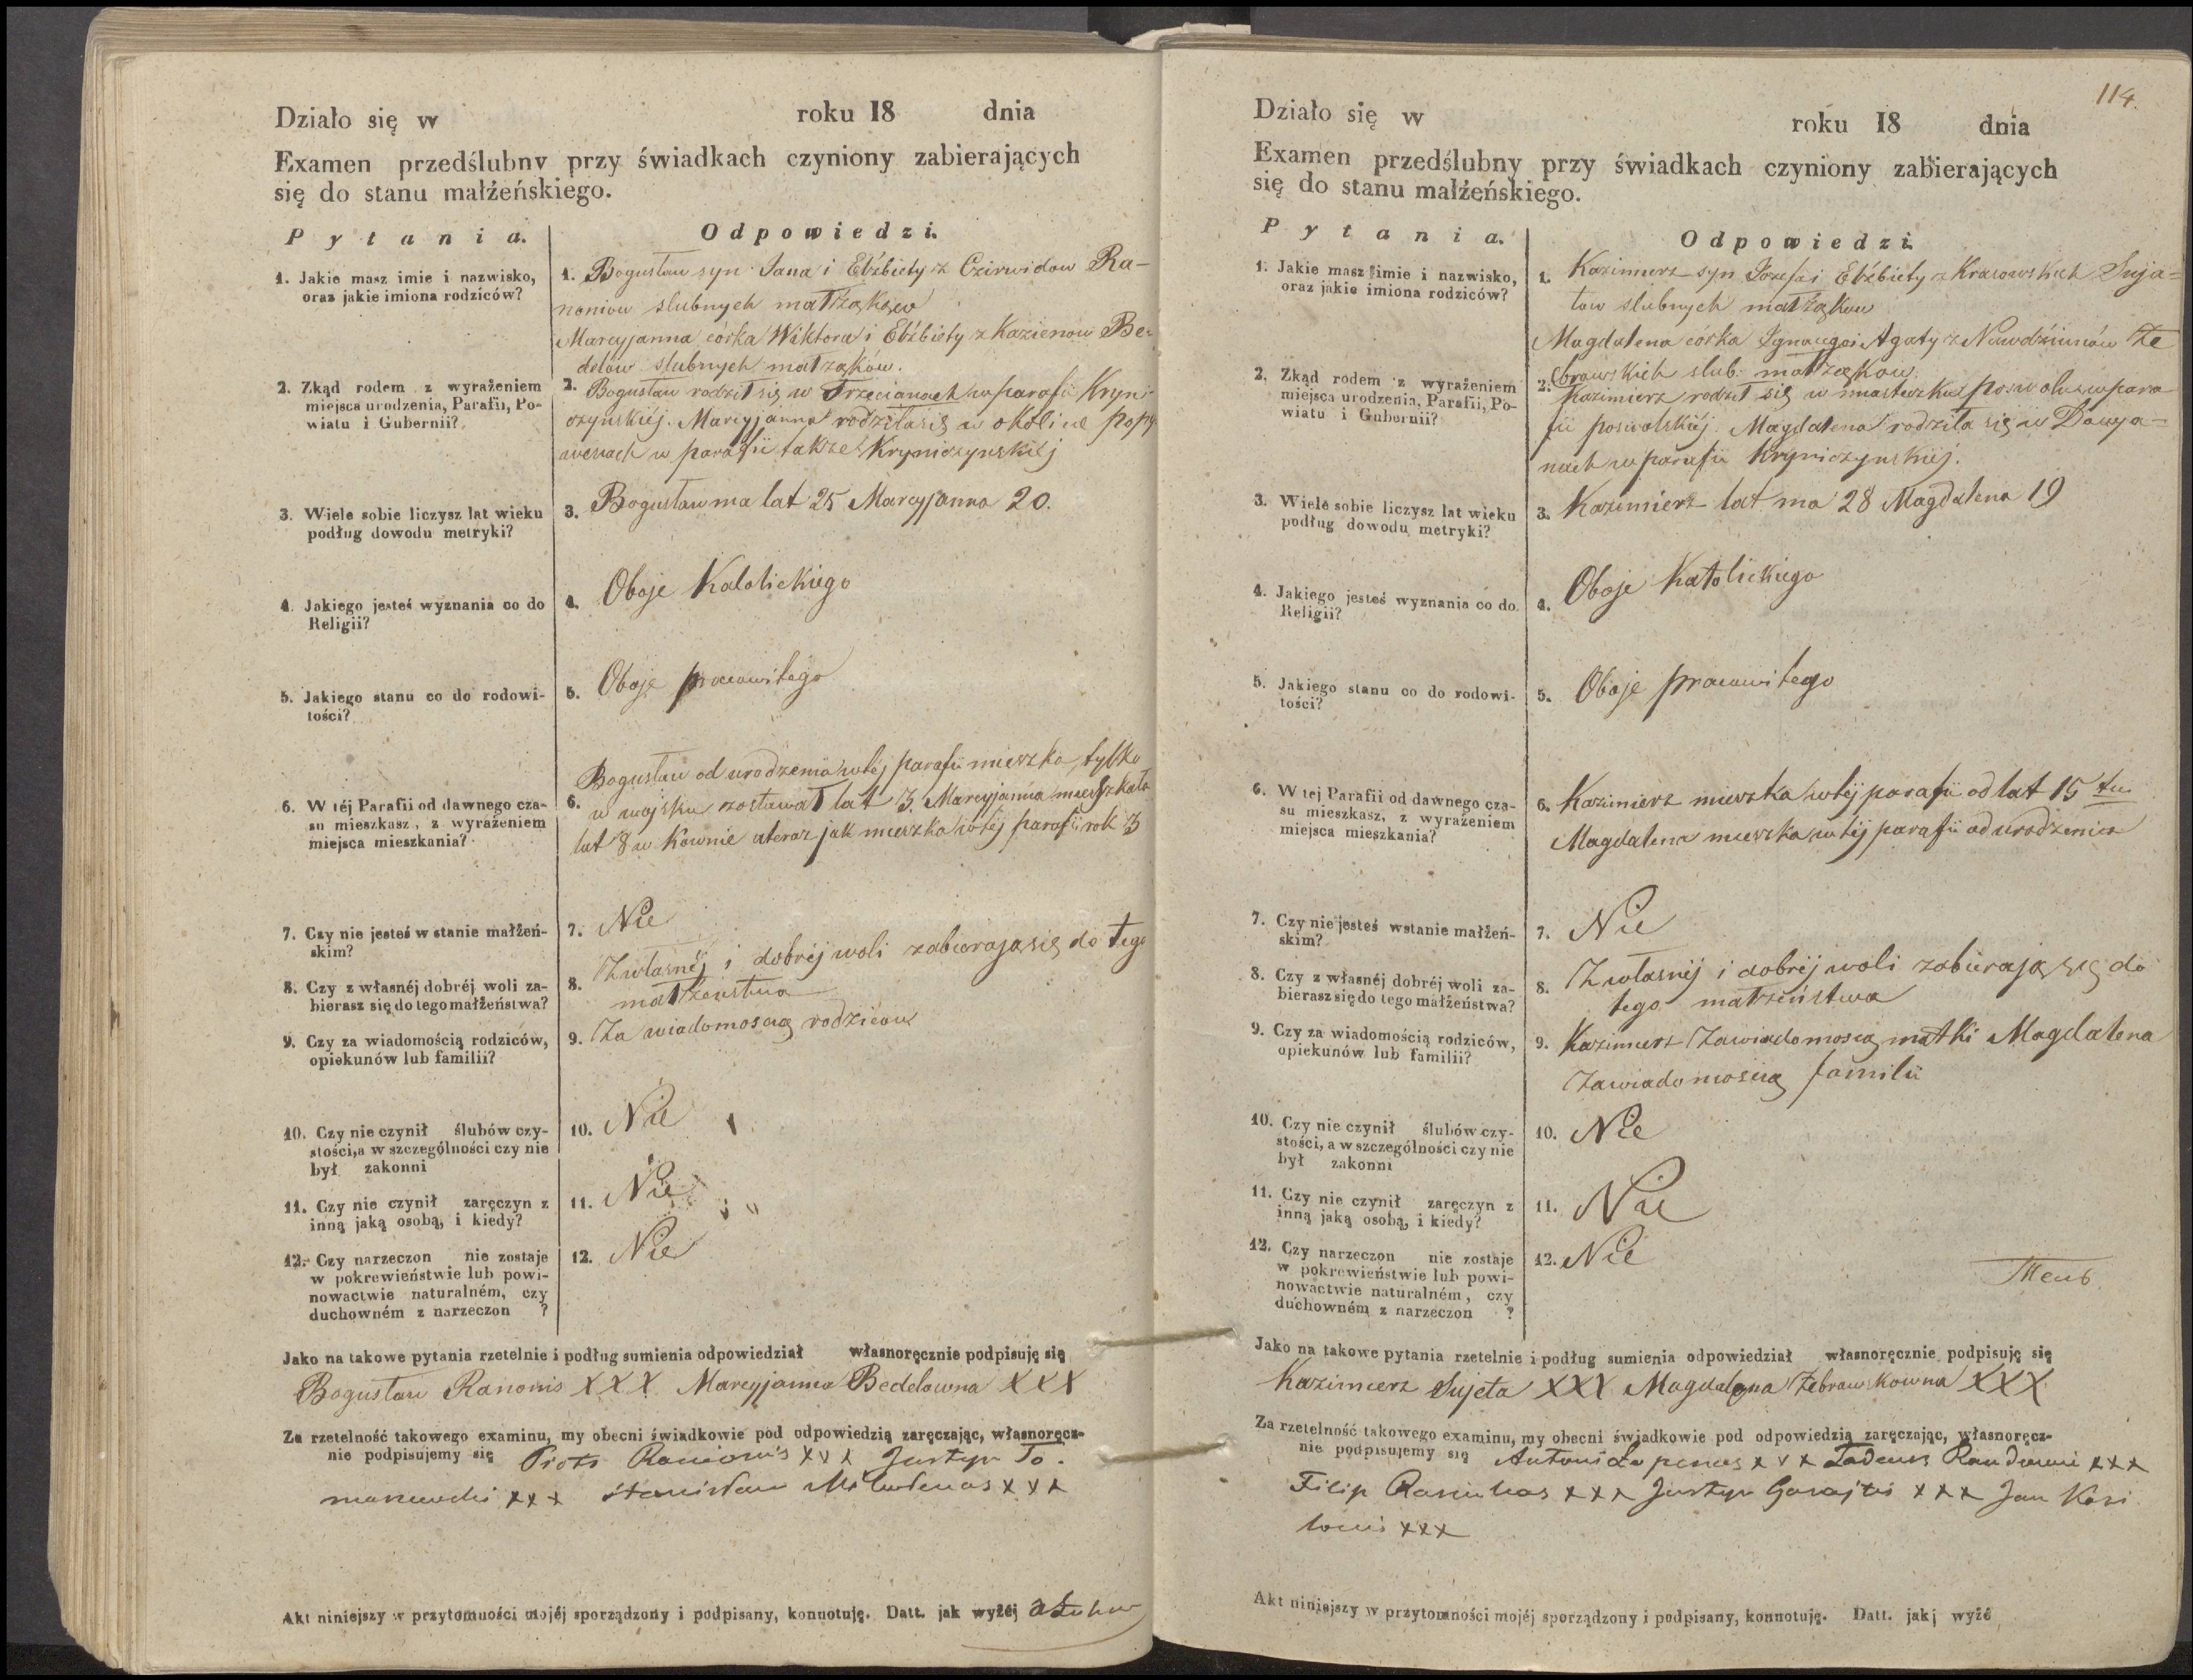 Działo się w roku 18 dnia
Examen przedślubny przy świadkach czyniony zabierających
się do stanu małżeńskiego.
Pytania. Odpowiedzi.
1. Jakie masz imie i nazwisko,
oraz jakie imiona rodziców?
1. Bogusław syn Jana i Elżbiety z Czirwidow Ra-
noniow slubnych małżąkow
Marcyjanna córka Wiktora i Elżbiety z Kazienow Be-
delów slubnych małżąków.
2. Zkąd rodem z wyrażeniem
miejsca urodzenia, Parafii, Po-
wiatu i Gubernii?
2. Bogusław rodził się w Trzecianach w parafii Kryni
czynskiéj. Marcyjanna rodziła się w okolice
w parafii także Kryniczynskiéj
3. Wiele sobie liczysz lat wieku
podług dowodu metryki?
3. Bogusław ma lat 25 Marcyjanna 20.
4. Jakiego jesteś wyznania co do
Religii?
4. Oboje Katolickiego
5. Jakiego stanu co do rodowi-
tości?
5. Oboje pracowitego
6. W téj Parafii od dawnego cza-
su mieszkasz, z wyrażeniem
miejsca mieszkania?
6. Bogusław od urodzenia w téj parafii mieszka, tylko
w wojsku zostawał lat 3. Marcyjanna mieszkała
lat 8 w Kownie a teraz jak mieszka w téj parafii rok 3
7. Czy nie jesteś w stanie małżeń-
skim?
7. Nie
8. Czy z własnéj dobréj woli za-
bierasz się do tego małżeństwa?
8. Z własnéj i dobréj woli zabierają się do tego
małżeństwa
9. Czy za wiadomością rodziców,
opiekunów lub familii?
9. Za wiadomoscią rodzicow
10. Czy nie czynił ślubów czy-
stości, a w szczególności czy nie
był zakonni
10. Nie
11. Czy nie czynił zaręczyn z
inną jaką osobą, i kiedy?
11. Nie
12. Czy narzeczon nie zostaje
w pokrewieństwie lub powi-
nowactwie naturalném, czy
duchowném z narzeczon ?
12. Nie
Jako na takowe pytania rzetelnie i podług sumienia odpowiedział własnoręcznie podpisuję się
Bogusław Ranonis XXX Marcyjanna Bedelowna XXX
Za rzetelność takowego examinu, my obecni świadkowie pod odpowiedzią zaręczając, własnoręcz-
nie podpisujemy się Piotr Ranionis xxx Justyn To.
xxx Stanisław xxx
Akt niniejszy w przytomności mojéj sporządzony i podpisany, konnotuję. Datt. jak wyżéj
114.
Działo się w roku 18 dnia
Examen przedślubny przy świadkach czyniony zabierających
się do stanu małżeńskiego.
Pytania. Odpowiedzi.
1. Jakie masz imie i nazwisko,
oraz jakie imiona rodziców?
1. Kazimierz syn Józefa i Elżbiety z Krasowskich Suja-
tow slubnych małżąkow
Magdalena córka Ignacego i Agaty z Nawodziunów Że
browskich slub. małżąkow
2. Zkąd rodem z wyrażeniem
miejsca urodzenia, Parafii, Po-
wiatu i Gubernii?
2. Kazimierz rodził się w miasteczku poswolu w para
fii poswolskiéj. Magdalena rodziła się w Dawja-
nach w parafii Kryniczynskiéj.
3. Wiele sobie liczysz lat wieku
podług dowodu metryki?
3. Kazimierz lat ma 28 Magdalena 19
4. Jakiego jesteś wyznania co do
Religii?
4. Oboje Katolickiego
5. Jakiego stanu co do rodowi-
tości?
5. Oboje pracowitego
6. W tej Parafii od dawnego cza-
su mieszkasz, z wyrażeniem
miejsca mieszkania?
6. Kazimierz mieszka w téj parafii od lat 15 tu
Magdalena mieszka w téj parafii od urodzenia
7. Czy nie jesteś wstanie małżeń-
skim?
7. Nie
8. Czy z własnéj dobréj woli za-
bierasz się do tego małżeństwa?
8. Z własnéj i dobréj woli zabierają się do
tego małżeństwa
9. Czy za wiadomością rodziców,
opiekunów lub familii?
9. Kazimierz Zawiadomoscią matki Magdalena
Zawiadomoscią familii
10. Czy nie czynił ślubów czy-
stości, a w szczególności czy nie
był zakonni
10. Nie
11. Czy nie czynił zaręczyn z
inną jaką osobą, i kiedy?
11. Nie
12. Czy narzeczon nie zostaje
w pokrewieństwie lub powi-
nowactwie naturalném, czy
duchowném z narzeczon ?
12. Nie
Jako na takowe pytania rzetelnie i podług sumienia odpowiedział własnoręcznie podpisuję się
Kazimierz Sujeta XXX Magdalena Żebrowskowna XXX
Za rzetelność takowego examinu, my obecni świadkowie pod odpowiedzią zaręczając, własnoręcz-
nie podpisujemy się Antoni Łapenas xxx Tadeusz xxx
Filip xxx Justyn xxx Jan Kazi
xxx
Akt niniejszy w przytomności mojéj sporządzony i podpisany, konnotuję. Datt. jak wyżé